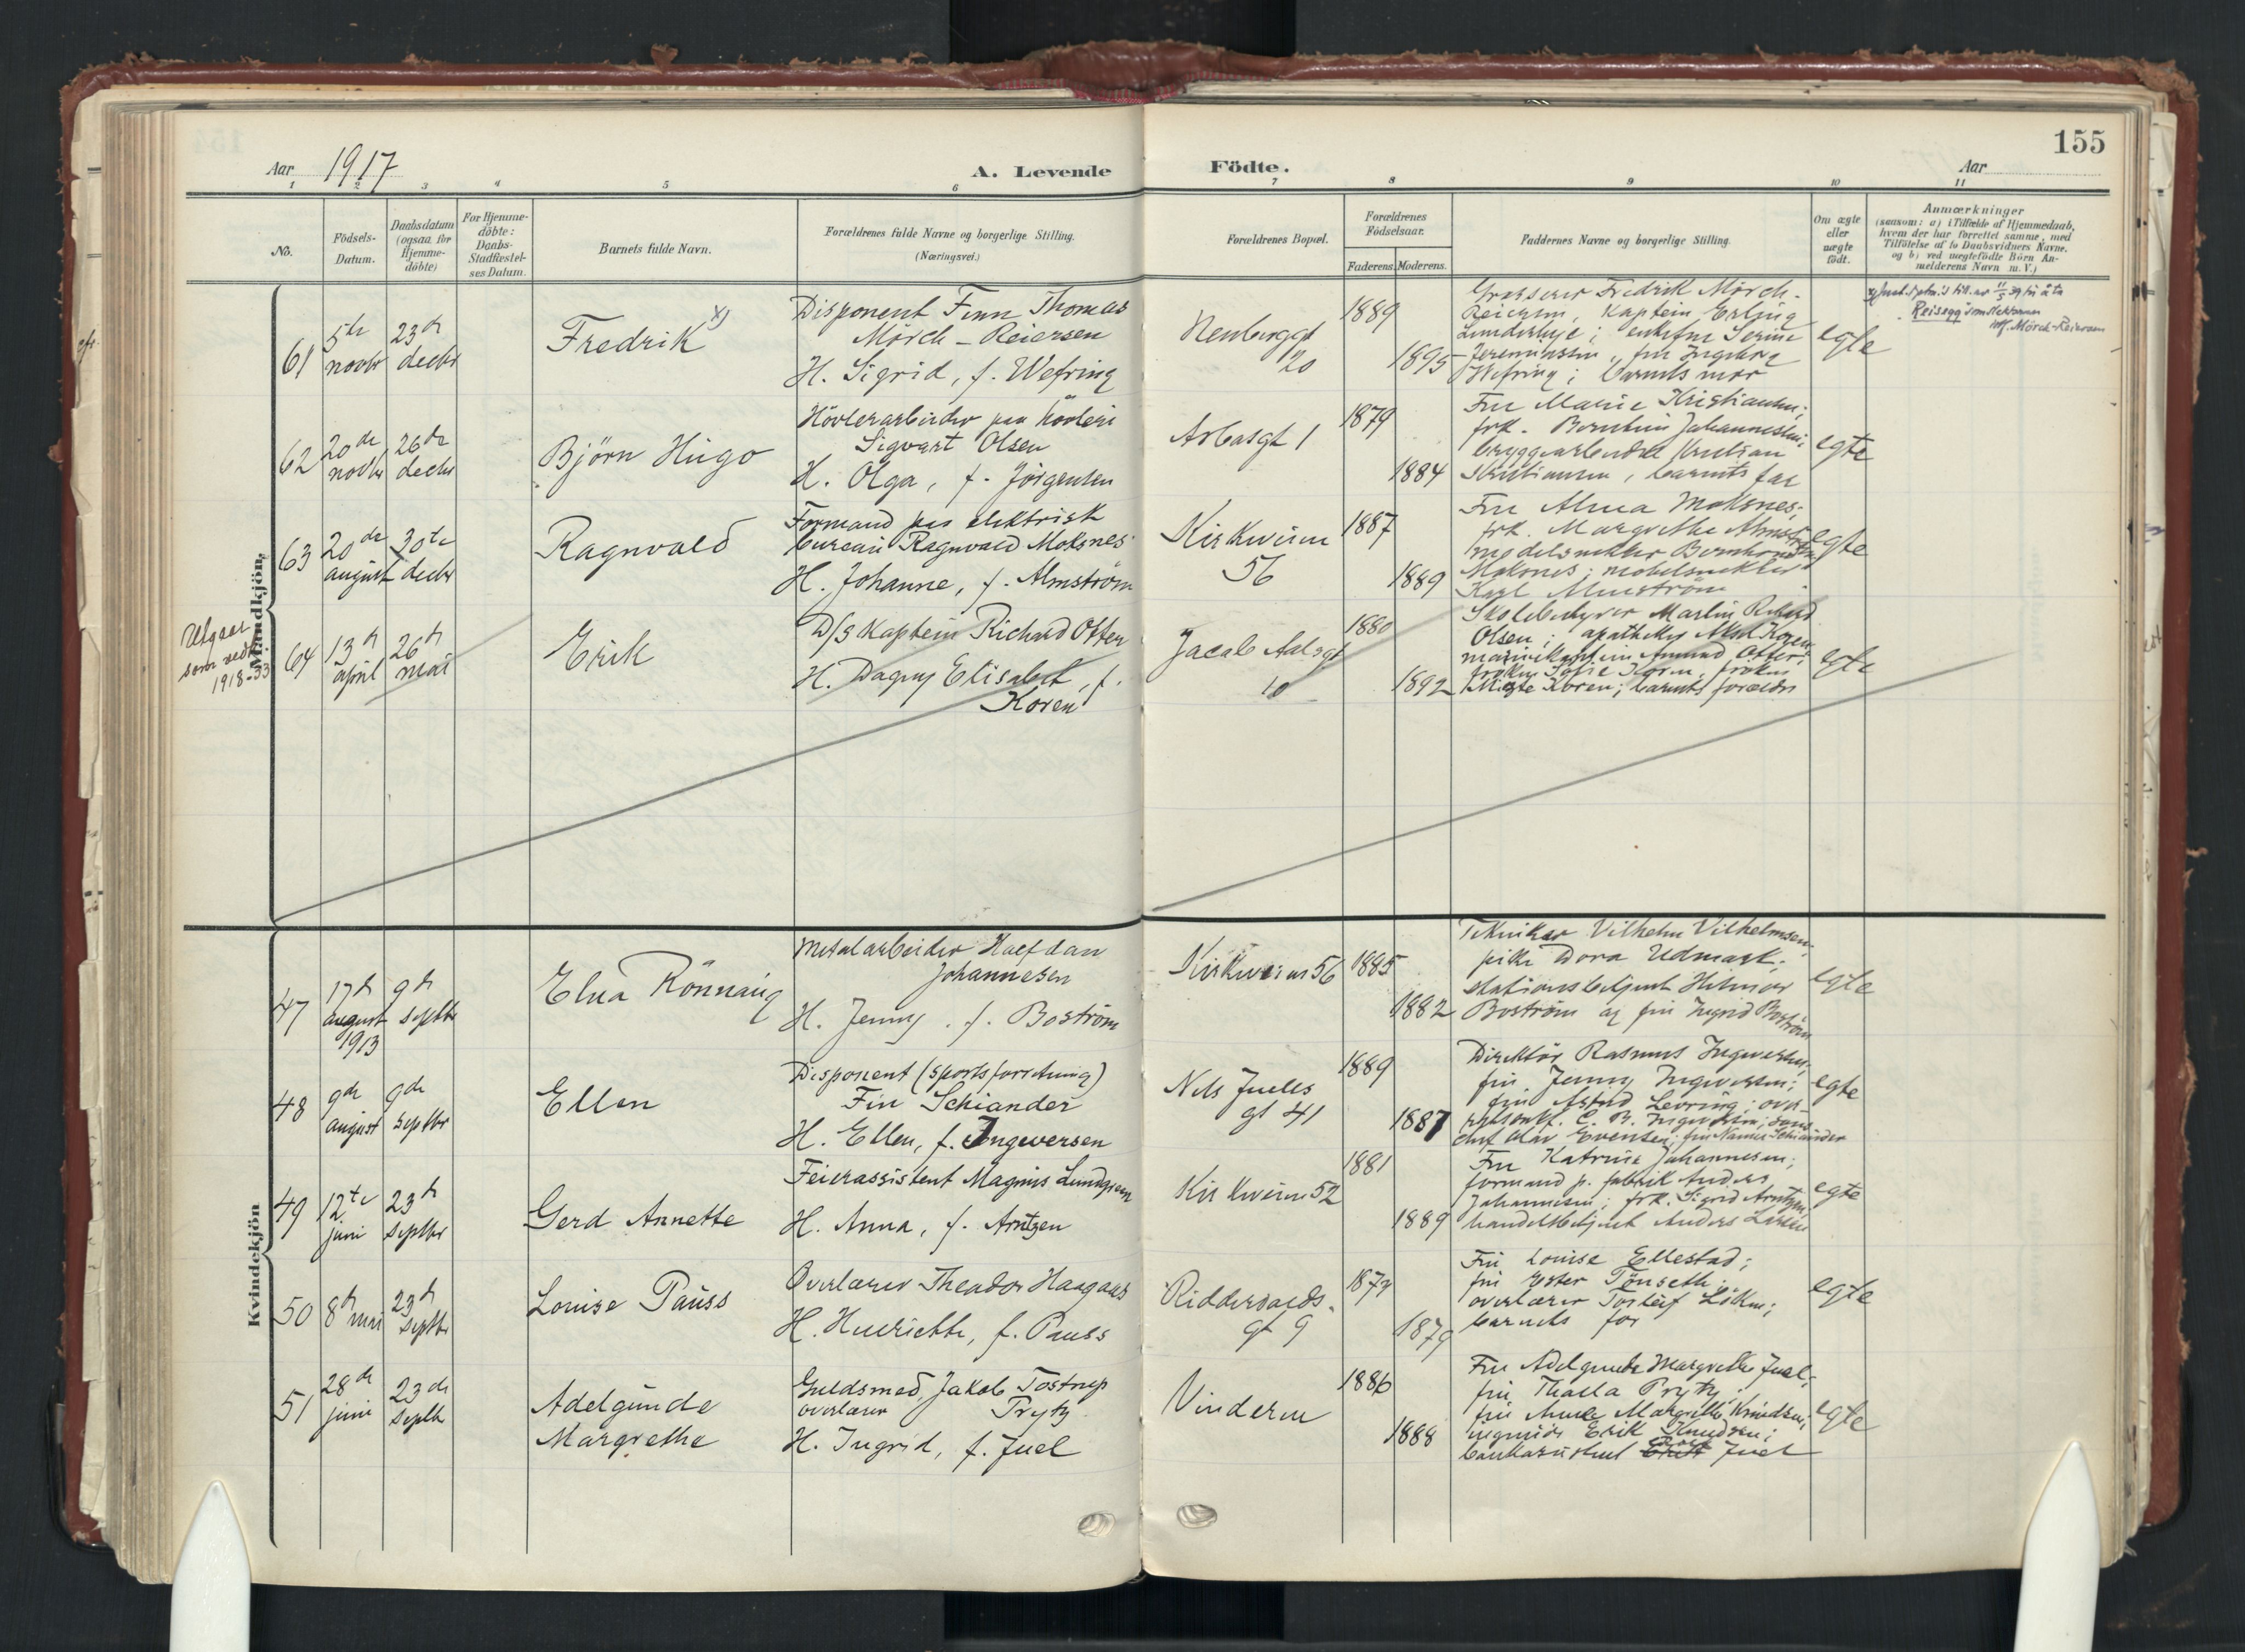 155
Aar 1917
A. Levende Födte.
Aar
1 2 3 4 5 6 7 8 9 10 11
No.
Födsels-Datum.
Daabsdatum (ogsaa for Hjemme-döbte)
For Hjemme-döbte: Daabs-Stadfæstel-ses Datum.
Barnets fulde Navn.
Forældrenes fulde Navne og borgerlige Stilling.
(Næringsvei.)
Forældrenes Bopæl.
Forældrenes Födselsaar.
Faderens. Moderens.
Faddernes Navne og borgerlige Stilling.
Om ægte eller uægte födt.
Anmærkninger
(saasom: a) i Tilfælde af Hjemmedaab,
hvem der har forrettet samme, med
Tilföielse af to Daabsvidners Navne.
og b) ved uegtefödte Börn An-
melderens Navn m. V.)
Mandkjön
61
5te novbr
23de decbr
Fredrik x)
Disponent Finn Thomas
Mörch-Reiersen
H. Sigrid, f. Wefring
20
1889
1895
Grosserer Fredrik Mörch-
Reiersen, Kaptein Erling
enkefru Serine
fru Ingeborg
Wefring; barnets mor
egte
Reisegg som slektsnavn
Mörch-Reiersen
62
20de novbr
26de decbr
Björn Hugo
Hövlerarbeider paa hövleri
Sigvart Olsen
H. Olga, f. Jörgensen
Asbasgt 1
1879
1884
Fru Marie Kristiansen;
frk. Johannesen;
bryggearbeider Kristian
Kristiansen, barnets far
egte
63
20de august
30te decbr
Ragnvald
Formand paa elektrisk
bureau Ragnvald Moksnes
H. Johanne, f. Almström
Kirkeveien
56
1887
1889
Fru Alma Moksnes;
frk. Margrethe Almström
modelsnekker
Moksnes; mobelsnekker
Karl Almström
egte
Utgaar
som vedk.
1918-33
64
13de april
26de mai
Erik
D/S Kaptein Richard Otter
H. Dagny Elisabet, f.
Koren
Jacob Aalsgt
10
1880
1892
Skolebestyrer Martin Richard
Olsen; apotheker Aksel Koren
marinekaptein Amund Otter;
fröken Sofie Koren, fröken
Koren; barnets forældre
egte
Kvindekjön
47
17de august 1913
9de septbr
Elna Rönnaug
Metalarbeider Halfdan
Johannesen
H. Jenny, f. Boström
Kirkeveien 56
1885
1882
Tekniker Vilhelm Vilhelmsen;
pike Dora Udmark;
stationsbetjent Hilmar
Boström og fru Ingrid Boström
egte
48
9de august
9de septbr
Ellen
Disponent (sportsforretning)
Finn Schiander
H. Ellen, f. Ingwersen
Nils Juells
gt 41
1889
1887
Direktör Rasmus Ingwersen,
fru Jenny Ingwersen;
fru Astrid Levring;
C. R. Ingwersen;
Olav Evensen; fru Nanna Schiander
egte
49
12te juni
23de septbr
Gerd Annette
Feierassistent Magnus Lundgren
H. Anna, f. Arntzen
Kirkeveien 52
1881
1889
Fru Katrine Johannesen;
formand p. fabrik Anders
Johannesen; frk. Sigrid Arntzen,
handelsbetjent Anders Larsen
egte
50
8de mai
23de septbr
Louise Pauss
Overlærer Theodor Haagaas
H. Henriette, f. Pauss
Riddervolds-
gt 9
1879
Fru Louise Ellestad;
fru Ester Tönseth;
overlærer Torleif Löken;
barnets far
egte
51
28de juni
23de septb
Adelgunde
Margrethe
Guldsmed, Jakob Tostrup
overlærer Prytz
H. Ingrid, f. Juel
Vinderen
1886
1888
Fru Adelgunde Margrethe Juel;
fru Thalla Prytz;
fru Margrethe Knudsen;
ingeniör Erik Knudsen;
bankassistent Juel
egte